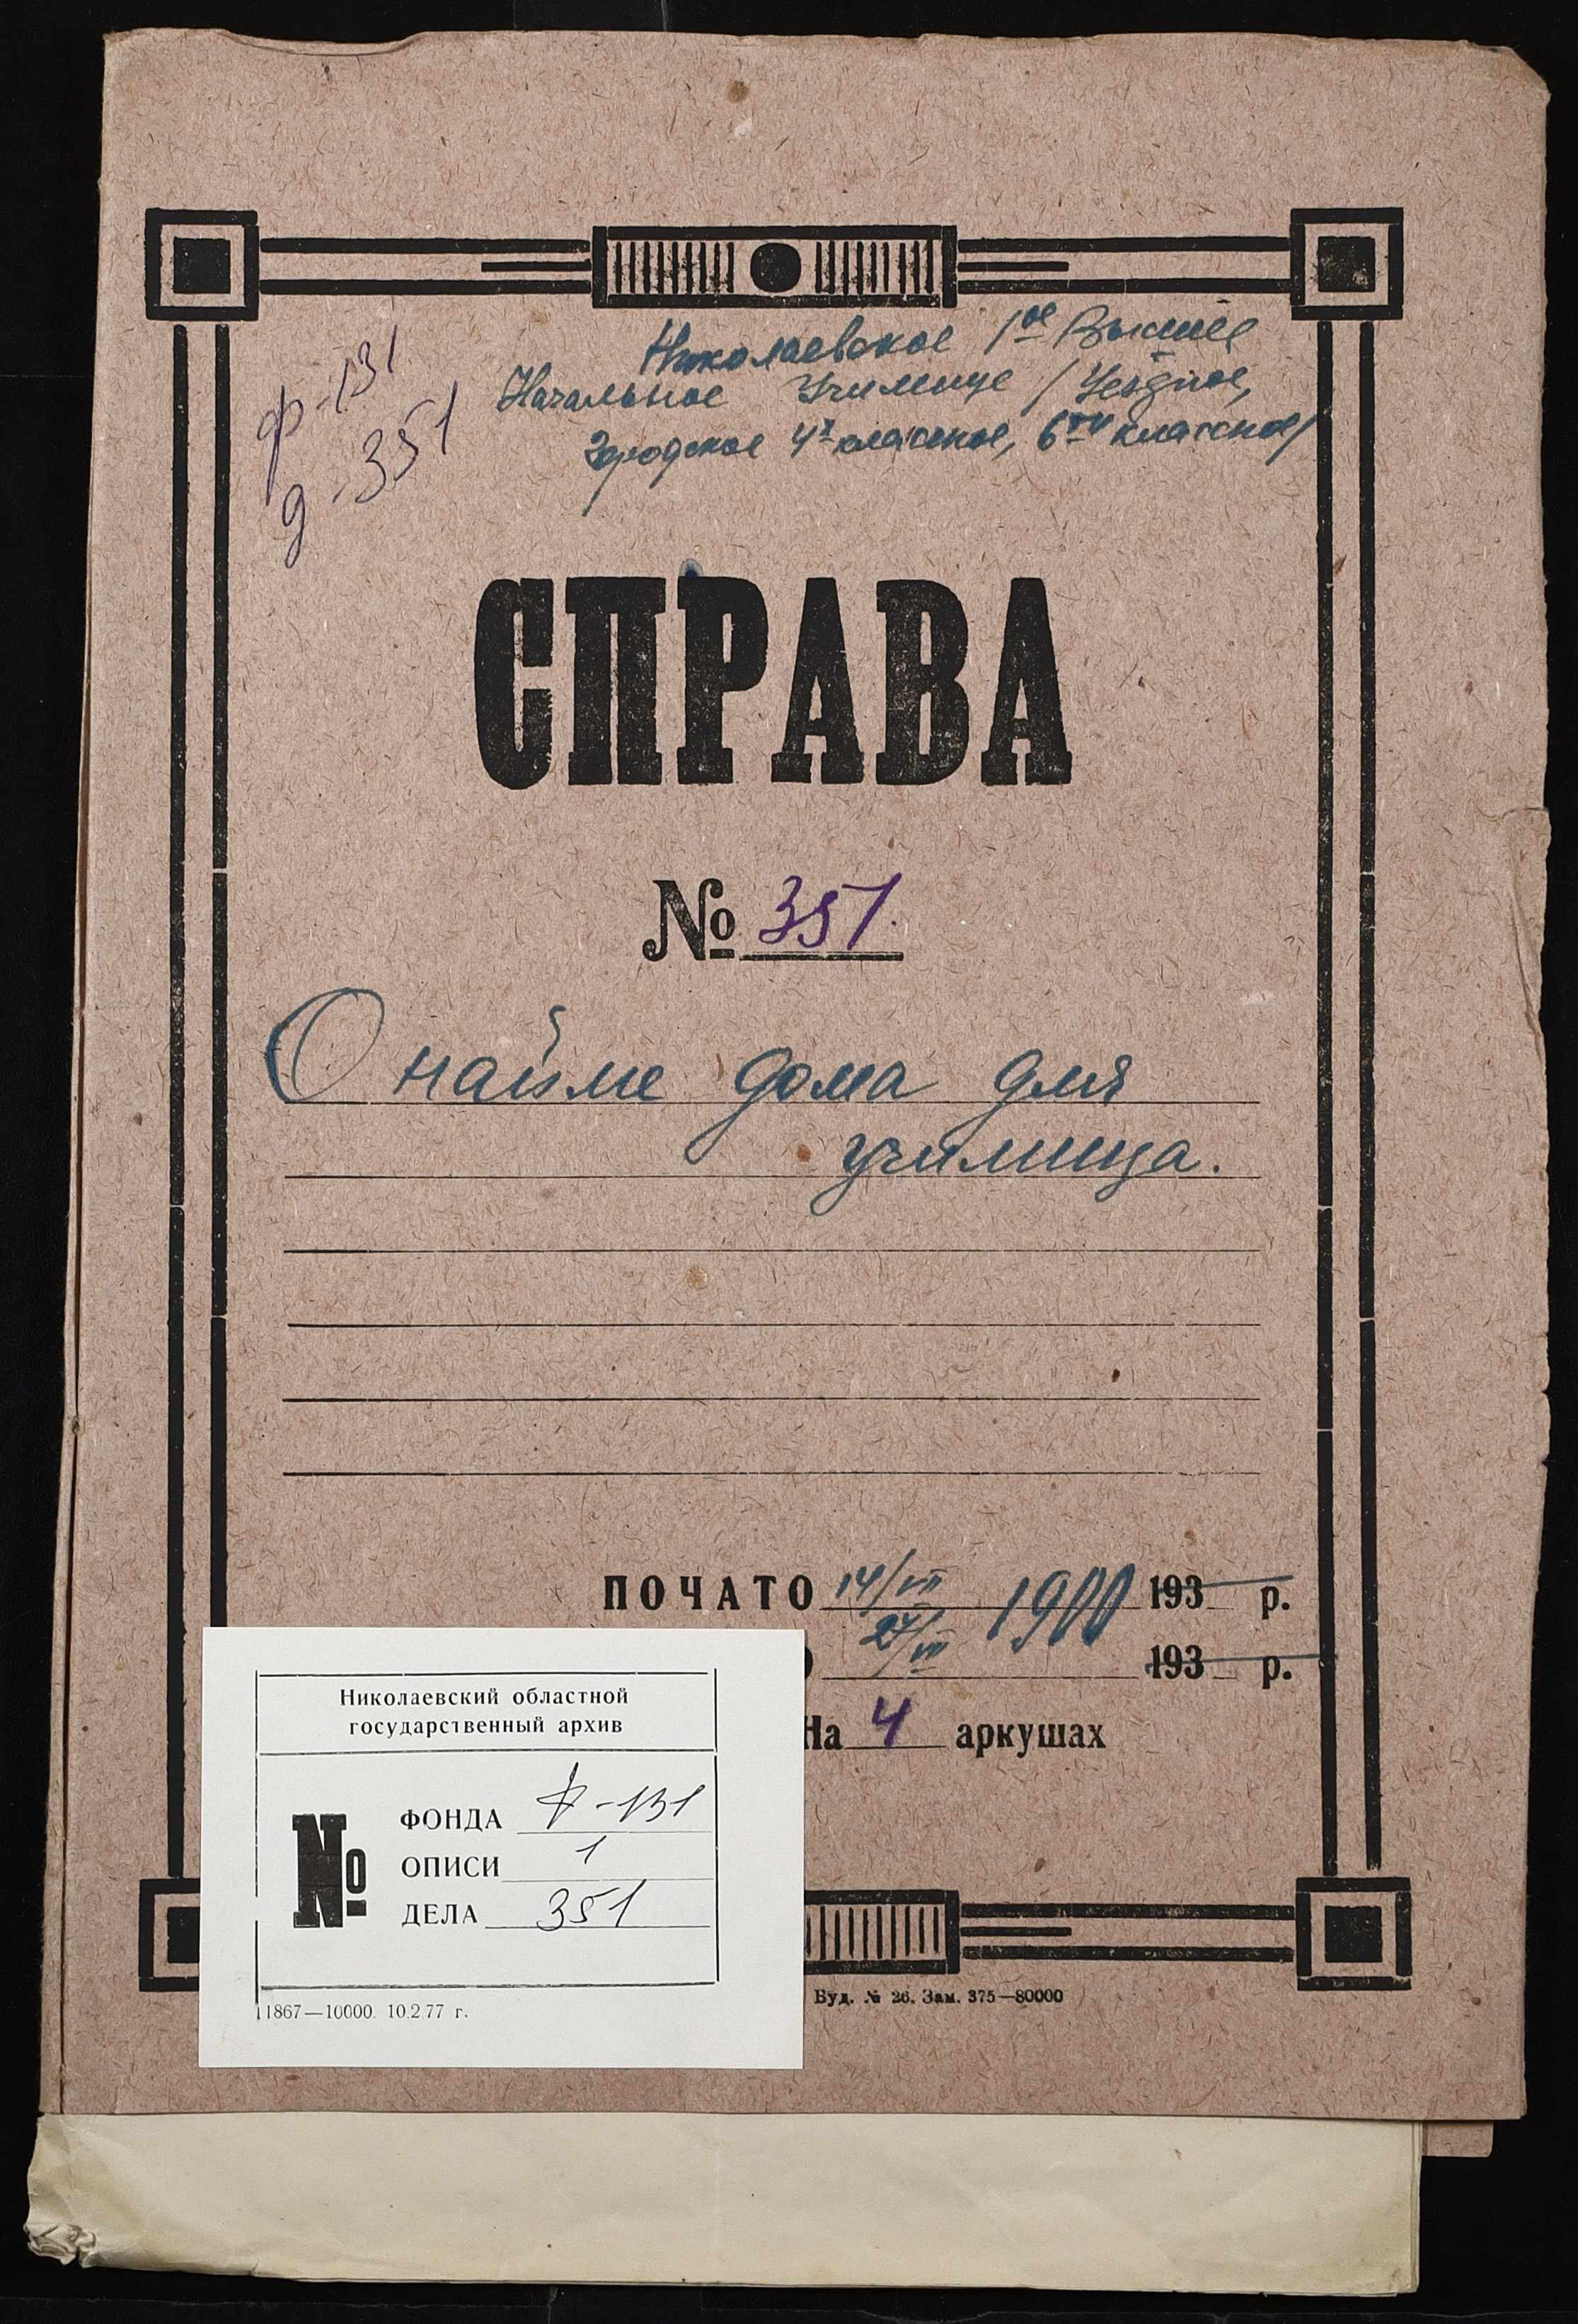 ф-131
д-351
Николаевское 1ое Высшее
Начальное Училище /Уездное,
Городское 4х классное, 6ти классное/
СПРАВА
№ 351.
О найме дома для
училища.
ПОЧАТО 14/VII 1900 193 р.
27/VII 193 р.
На 4 аркушах
Николаевский областной
государственный архив
№
ФОНДА Ф-131
ОПИСИ 1
ДЕЛА 351
11867—10000. 10.2.77 г.
Буд. № 26. Зам. 375—80000